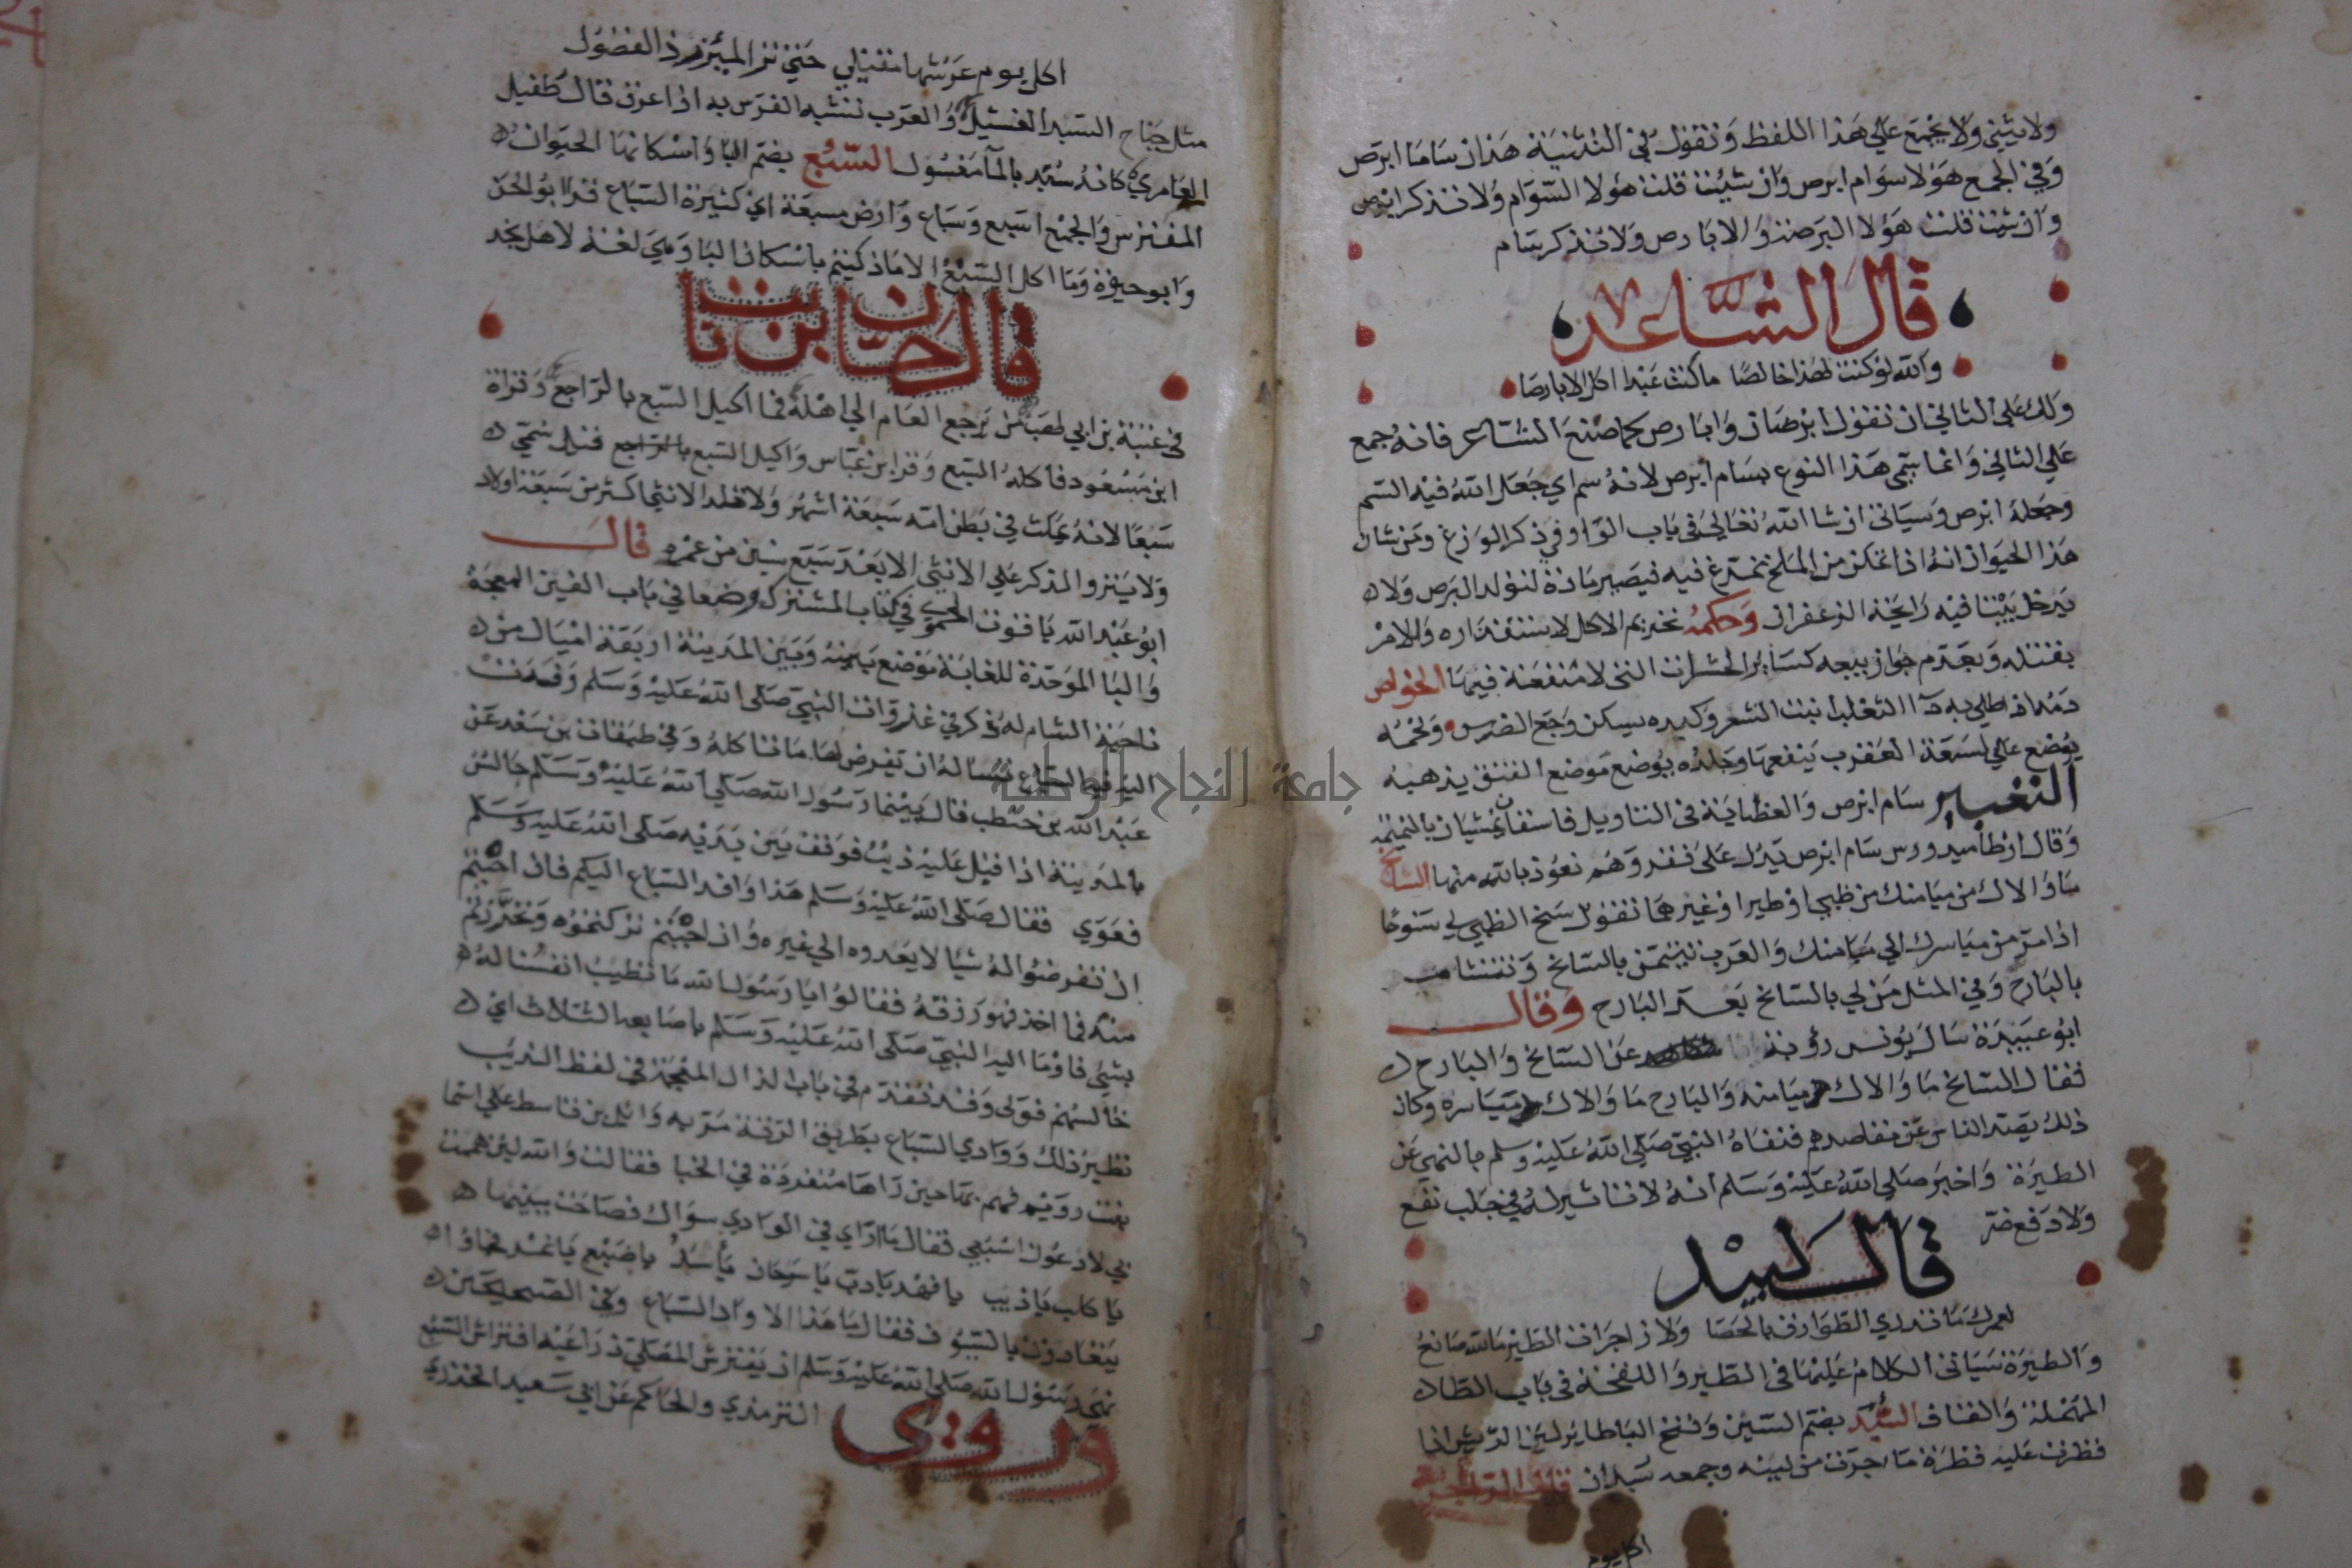 ولا يثنى ولا يجمع على هذا اللفظ وتقول في التثنية هذان ساما ابرص
وفي الجمع هولا سوام ابرص وان شيت قلت هولا السوام ولا تذكر ابرص
وان شيت قلت هؤلا البرصة والابارص ولا تذكر سام
قال الشاعر
والله لو كنت لهذا خالصا ما كنت عبدا اكل الابارصا
ولك على الثاني ان تقول ابرصان وابارص كما صنع الشاعر فانه جمع
على الثاني وانما سمى هذا النوع بسام ابرص لانه سم اي جعل الله فيه السم
وجعله ابرص وسياتي ان شا الله تعالى في باب الواو في ذكر الوزغ ومن شان
هذا الحيوان انه اذا تمكن من الملح تمرغ فيه فيصير مادة لتولد البرص ولا
يدخل بيتا فيه رايحة الزعفران وحكمه تحريم الاكل لاستقذاره وللامر
بقتله وبعدم جواز بيعه كساير الحشرات التي لا منفعة فيها الخواص
دمه اذا طلي به دآ الثعلب انبت الشعر وكبده يسكن وجع الضرس ولحمه
يوضع على لسعة العقرب ينفعها وجلده يوضع موضع الفتق يذهبه
التعبير سام ابرص والعظاية في التاويل فاسقان يمشيان بالنميمة
وقال ارطاميدورس سام ابرص يدل على فقر وهم نعوذ بالله منها السانح
ما والاك من ميامنك من ظبي او طير او غيرهما تقول سنح الظبي لي سنوحا
اذا مر من مياسرك الى ميامنك والعرب تتيمن بالسانح وتتشام
بالبارح وفي المثل من لي بالسانح بعد البارح وقال
ابو عبيدة سال يونس رؤبة عن السانح والبارح
فقال السانح ما والاك ميامنه والبارح ما والاك مياسره وكان
ذلك يصد الناس عن مقاصدهم فنفاه النبي صلى الله عليه وسلم بالنهي عن
الطيرة واخبر صلى الله عليه وسلم انه لا تاثير له في جلب نفع
ولا دفع ضر
قال لبيد
لعمرك ما تدري الطوارق بالحصا ولا زاجرات الطير ما الله صانع
والطيرة سياتي الكلام عليها في الطير واللقحة في باب الطا
المهملة والقاف السبد بضم السين وفتح البا طاير لين الريش اذا
قطرت عليه قطرة ما جرت من لينه وجمعه سبدان قال الراجز
اكل يوم
اكل يوم عرشها مقيلي حتى تر الميزر ذا الفضول
مثل جناح السبد الغسيل والعرب تشبه الفرس به اذا عرق قال طفيل
العامري كانه سبد بالمآ مغسول السبع بضم البا واسكانها الحيوان
المفترس والجمع اسبع وسباع وارض مسبعة اي كثيرة السباع قرا ابو الحسن
وابو حيوة وما اكل السبع الا ما ذكيتم باسكان البا وهي لغة لاهل نجد
قال حسان بن ثابت
في عتبة بن ابي لهب من يرجع العام الى اهله فما اكيل السبع بالراجع وقراة
ابن مسعود فاكله السبع وقرا ابن عباس واكيل السبع بالراجع قيل سمي
سبعا لانه يمكث في بطن امه سبعة اشهر ولا تلد الانثى اكثر من سبعة اولاد
ولا ينزو الذكر على الانثى الا بعد سبع سنين من عمره قال
ابو عبد الله ياقوت الحموي في كتاب المشترك وضعا في باب الغين المعجمة
والبا الموحدة للغابة موضع بينه وبين المدينة اربعة اميال من
ناحية الشام له ذكر في غزوات النبي صلى الله عليه وسلم وفدت
اليه فيه السباع تساله ان يفرض لها ما تاكله وفي طبقات بن سعد عن
عبد الله بن حنطب قال بينما رسول الله صلى الله عليه وسلم جالس
بالمدينة اذ اقبل عليه ذيب فوقف بين يديه صلى الله عليه وسلم
فعوي فقال صلى الله عليه وسلم هذا وافد السباع اليكم فان احببتم
ان تفرضوا له شيا لا يعدوه الى غيره وان احببتم تركتموه وتحرزتم
منه فما اخذ فهو رزقه فقالوا يا رسول الله ما تطيب انفسنا له
بشي فاوما اليه النبي صلى الله عليه وسلم باصابعه الثلاث اي
خالسهم فولى وقد تقدم في باب الذال المعجمة في لفظ الذيب
نظير ذلك ووادي السباع بطريق الرقة مر به وائل بن قاسط على اسما
بنت رويم فهم بها حين راها منفردة في الخبا فقالت والله لين هممت
بي لادعون اسبعي فقال ما ارى في الوادي سواك فصاحت ببنيها
يا كلب يا ذيب يا فهد يا دب يا سرحان يا سد يا ضبع يا نمر فجاوا
يتعادون بالسيوف فقال ما هذا الا واد السباع وفي الصحيحين
نهى رسول الله صلى الله عليه وسلم ان يفترش المصلي ذراعيه افتراش السبع
وروى الترمذي والحاكم عن ابي سعيد الخدري
جامعة النجاح الوطنية